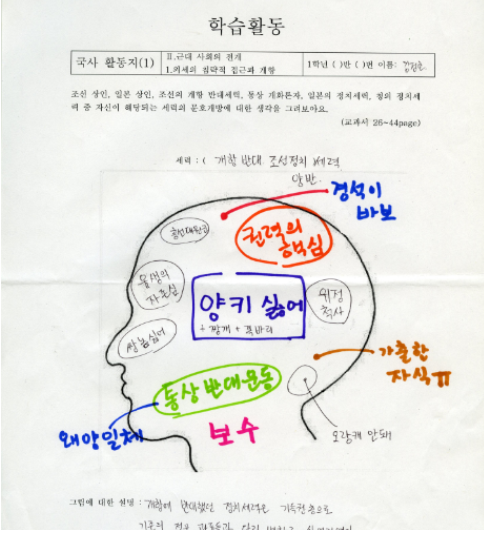 학습활동
국사 활동지(1)
Ⅱ.근대 사회의 전개
1.외세의 침략적 접근과 개항
1학년 ( )반 ( )번 이름:
조선 상인, 일본 상인, 조선의 개항 반대세력, 통상 개화론자, 일본의 정치세력, 청의 정치세
력 중 자신이 해당되는 세력의 문호개방에 대한 생각을 그려보아요.
(교과서 26~44page)
세력 : ( 개항 반대 조선정치 세력
양반
경석이
바보
흥선대원군
권력의
핵심
유생의
자존심
양키 싫어
+ 짱깨 + 쪽바리
위정
척사
쌀놈싫어
가출한
자식ㅠ
통상 반대운동
왜양일체
보수
오랑캐 안돼
그림에 대한 설명 : 개항에 반대했던 정치세력은 기득권층으로